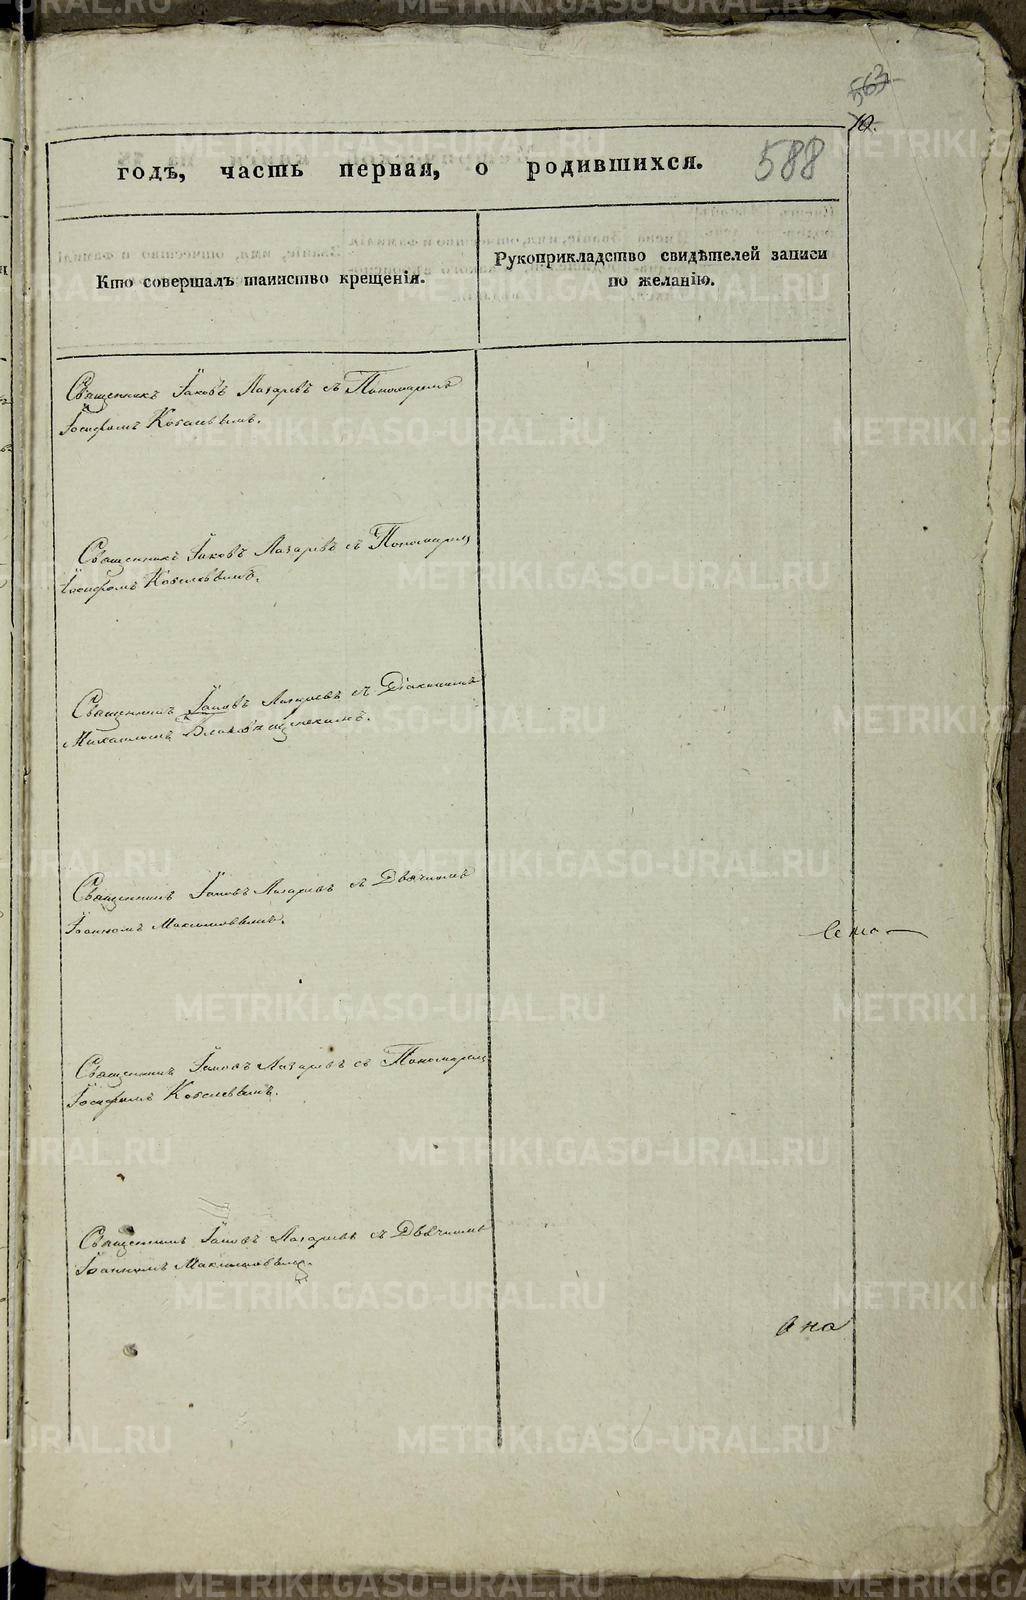 563
10.
588
годъ, часть первая, о родившихся.
Кто совершалъ таинство крещенія.
Рукоприкладство свидѣтелей записи
по желанію.
Священникъ Іаковъ Лазаревъ съ Пономаремъ
Іосифомъ Кобелевымъ.
Священникъ Іаковъ Лазаревъ съ Пономаремъ
Іосифомъ Кобелевымъ.
Священникъ Іаковъ Лазаревъ съ Діакономъ
Михаиломъ
Священникъ Іаковъ Лазаревъ съ Дьячкомъ
Іоанномъ Максимовымъ.
Священникъ Іаковъ Лазаревъ съ Пономаремъ
Іосифомъ Кобелевымъ.
Священникъ Іаковъ Лазаревъ съ Дьячкомъ
Іоанномъ Максимовымъ.
METRIKI.GASO-URAL.RU